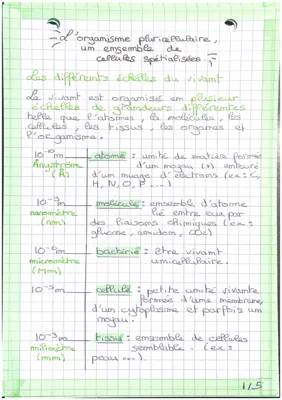 L'organisme pluricellulaire,
un ensemble de
cellules spécialisées
Les différents échelles du vivant
Le vivant est organisé en plusieur
échelles de grandeurs différentes
telle que l'atomes, la molécules, les
cellules, les tissus, les organes et
l'organisme.
10⁻¹⁰m atome : unité de matière formée
Angström d'un noyau (+) entouré
(Å) d'un nuage d'électrons (ex : C,
H, N, O, P ...)
10⁻⁹m molécule : ensemble d'atome
nanomètre lié entre eux par
(nm) des liaisons chimiques (ex :
glucose, amidon, CO2)
10⁻⁶m bactérie : être vivant
micromètre unicellulaire.
(Mm)
10⁻⁵m cellule : petite unité vivante
formée d'une membrane,
d'un cytoplasme et parfois un
noyau.
10⁻³m tissus : ensemble de cellules
milimètre semblable. (ex :
(mm) peau ...).
1/5